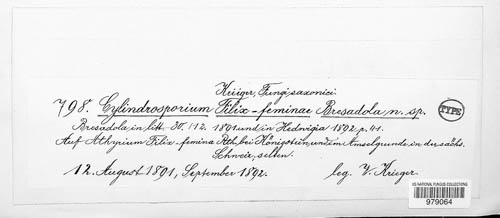 Krieger, Fungi saxonici.
798. Cylindrosporium Filix-feminae Bresadola n. sp. TYPE
Bresadola in litt. 30./12. 1891 und in Hedwigia 1892. p. 41.
Auf Athyrium Filix-femina Rth. bei Königstein, und im Amselgrunde in der sächs.
Schweiz, selten.
12. August 1891, September 1892. leg. W. Krieger.
US NATIONAL FUNGUS COLLECTIONS
979064